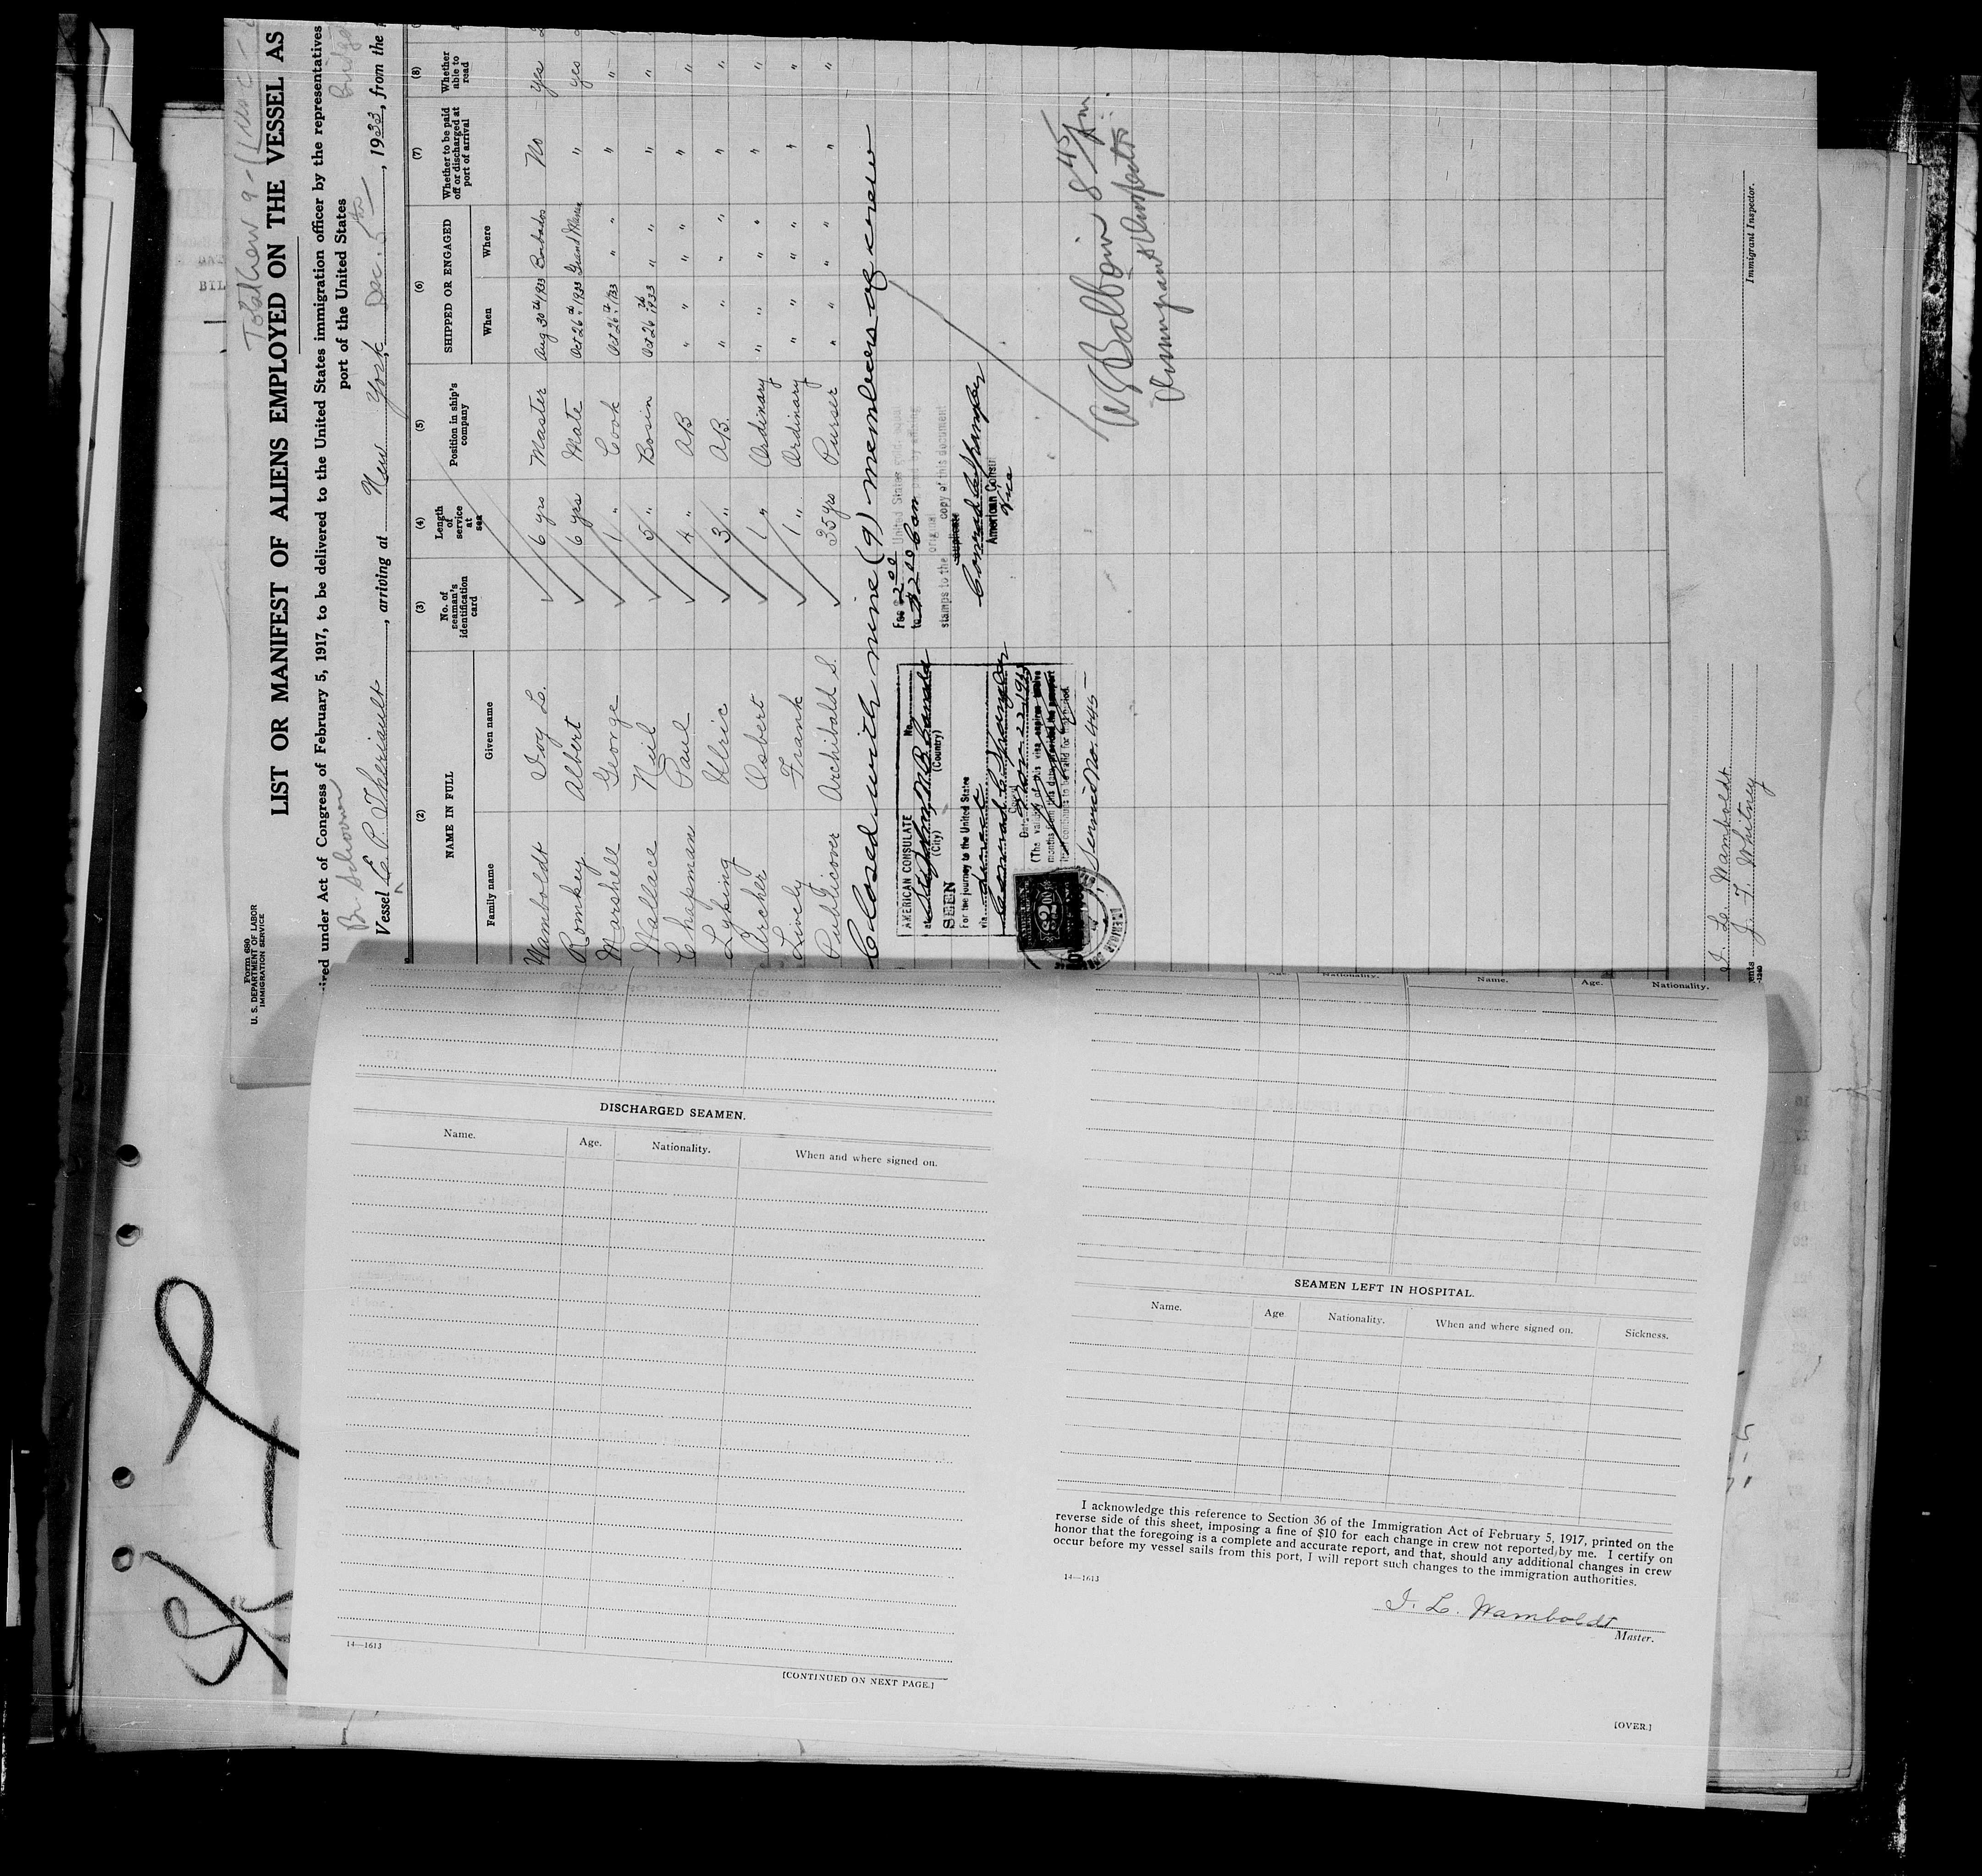 Form 680
U. S. DEPARTMENT OF LABOR
IMMIGRATION SERVICE
Total crew 9 -
LIST OR MANIFEST OF ALIENS EMPLOYED ON THE VESSEL AS
ired under Act of Congress of February 5, 1917, to be delivered to the United States immigration officer by the representatives
port of the United States
Br. Schooner
Vessel E. P. Theriault, arriving at New York Dec. 5th, 1933, from the
(2) (3) (4) (5) (6) (7) (8)
NAME IN FULL
Family name Given name
No. of seaman's identification card
Length of service at sea
Position in ship's company
SHIPPED OR ENGAGED
When Where
Whether to be paid off or discharged at port of arrival
Whether able to read
Wamboldt Ivoy L. 6 yrs Master Aug 30th 1933 Barbados No Yes
Romkey Albert 6 yrs Mate Oct 26th 1933 Grand Manan " yes
Marshell George 1 " Cook Oct 26th 1933 " " " "
Wallace Neil 5 " Bosin Oct 26th 1933 " " " "
Chapman Paul 4 " AB " " " " "
Lyking Ulric 3 " AB. " " " " "
Archer Osbert 1 " Ordinary " " " " " "
Lively Frank 1 " Ordinary " " " " " "
Publicover Archibald S. 35 yrs Purser " " " " " "
Closed with nine (9) members of crew
AMERICAN CONSULATE No.
at St. John, N.B. Canada
(City) (Country)
SEEN
For the journey to the United States
via direct
Consul
Date Nov. 22 1933
(The validity of this visa expires twelve
months from this date provided the passport
continues to be valid for that period.
Service No. 445
$2.00
Fee $2.00 United States
to $2.00 Can
original
stamps to the copy of this document
duplicate
American Consul
Vice
8 45/ Pm.
Immigrant Inspector
Immigrant Inspector.
I. L. Wamboldt
J. F. Whitney
Name. Age. Nationality.
DISCHARGED SEAMEN.
Name. Age. Nationality. When and where signed on.
14—1613
[CONTINUED ON NEXT PAGE.]
SEAMEN LEFT IN HOSPITAL.
Name. Age Nationality. When and where signed on. Sickness.
I acknowledge this reference to Section 36 of the Immigration Act of February 5, 1917, printed on the
reverse side of this sheet, imposing a fine of $10 for each change in crew not reported by me. I certify on
honor that the foregoing is a complete and accurate report, and that, should any additional changes in crew
occur before my vessel sails from this port, I will report such changes to the immigration authorities.
14—1613
I. L. Wamboldt
Master.
[OVER.]